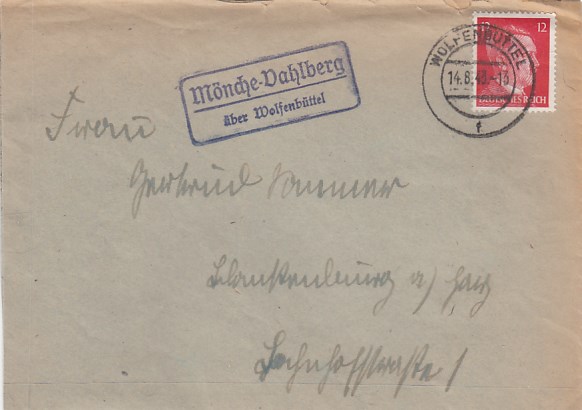 Mönche-Vahlberg
über Wolfenbüttel
WOLFENBÜTTEL
14.8.43.-13
f
12
DEUTSCHES REICH
Frau
Gertrud Sommer
Blankenburg a/ Harz
Bahnhofstraße 1